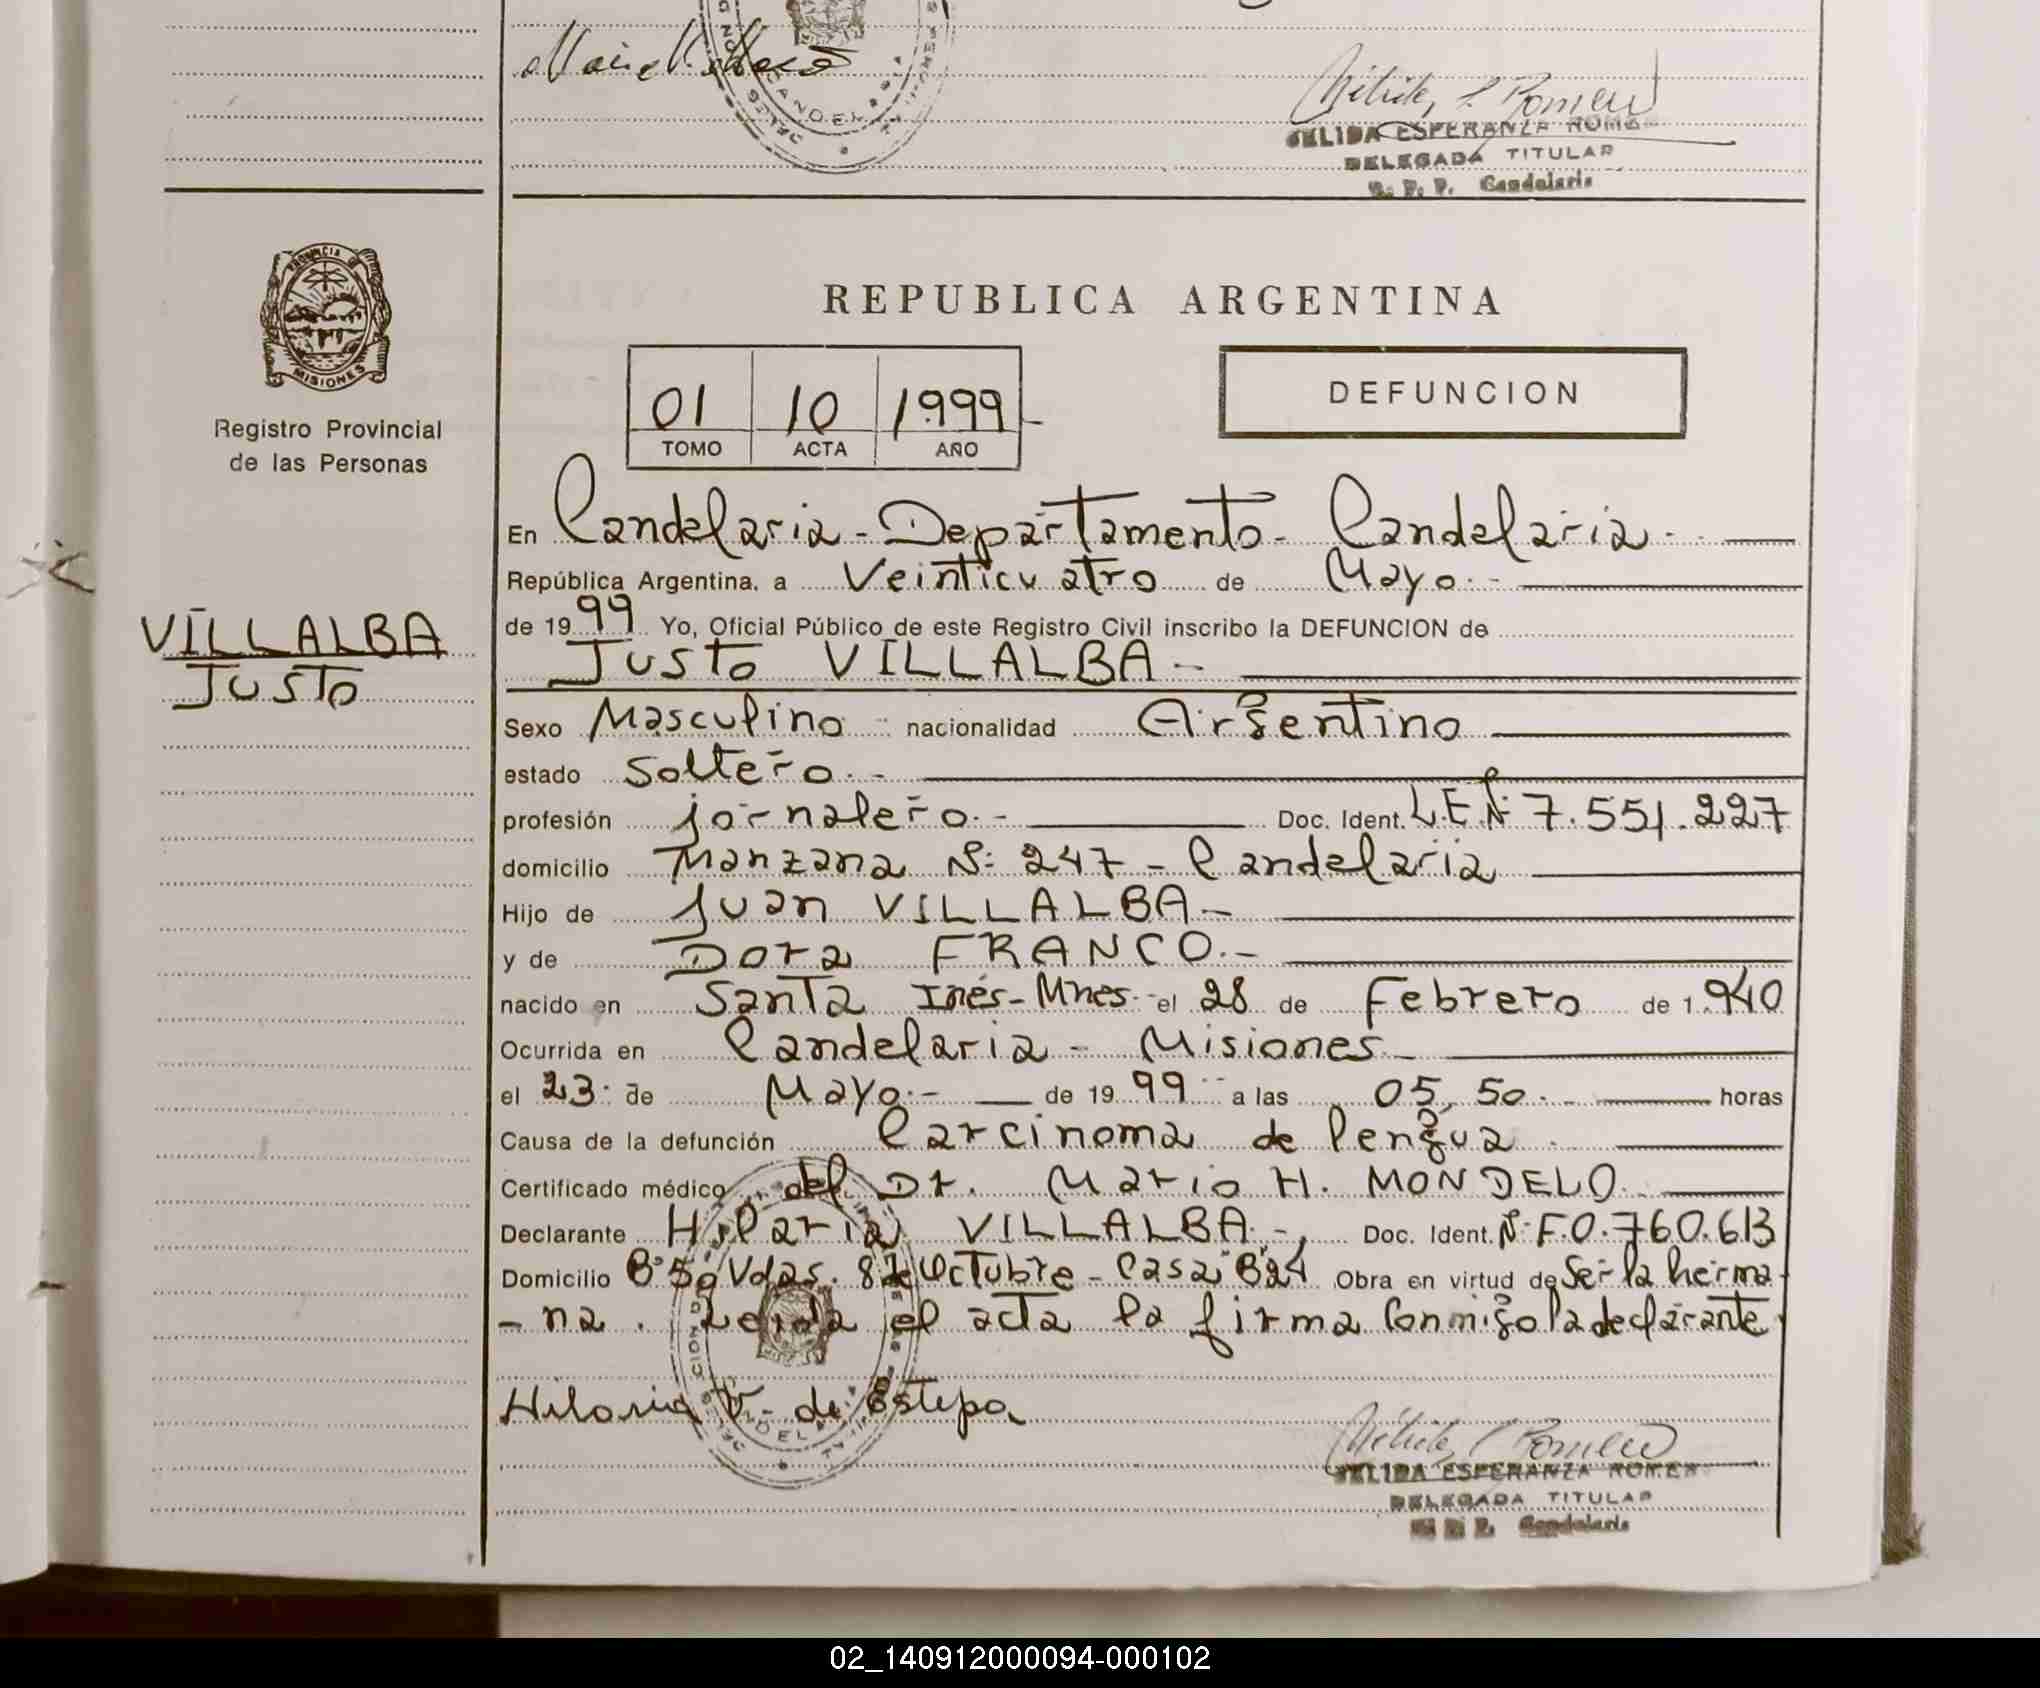 ELIDA ESPERANZA ROME
DELEGADA TITULAR
R. P. P. Candelaria
PROVINCIA DE
MISIONES
Registro Provincial
de las Personas
VILLALBA
Justo
REPUBLICA ARGENTINA
01 10 1999
TOMO ACTA AÑO
DEFUNCION
En Candelaria - Departamento - Candelaria -
República Argentina, a Veinticuatro de Mayo.-
de 1999 Yo, Oficial Público de este Registro Civil inscribo la DEFUNCION de
Justo VILLALBA -
Sexo Masculino nacionalidad Argentino
estado Soltero.-
profesión jornalero.- Doc. Ident. L.E.Nº 7.551.227
domicilio Manzana Nº 247 - Candelaria
Hijo de Juan VILLALBA -
y de Dora FRANCO.-
nacido en Santa Inés - Mnes. el 28 de Febrero de 1.940
Ocurrida en Candelaria - Misiones
el 23 de Mayo.- de 1999 a las 05,50 horas
Causa de la defunción Carcinoma de lengua
Certificado médico del Dr. Mario H. MONDELO
Declarante Hilaria VILLALBA.-, Doc. Ident. Nº F.0.760.613
Domicilio Bº 50 Vdas. 8 de Octubre - Casa "B"24 Obra en virtud de Ser la herma-
-na. Leida el acta la firma Conmigo la declarante
Hilaria V. de Estepa
ELIDA ESPERANZA ROMER
DELEGADA TITULAR
R. P. P. Candelaria
02_140912000094-000102